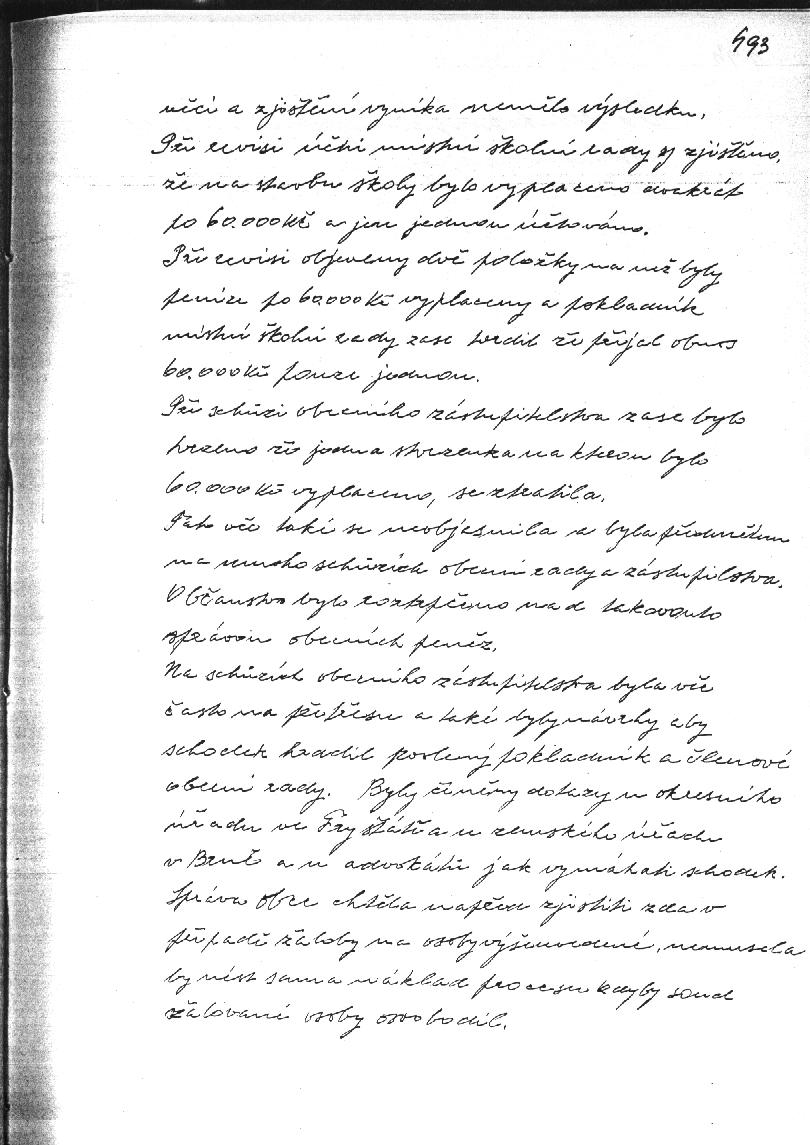 593
věci a zjištění vyníka nemělo výsledku.
Při revisi účtů místní školní rady zjištěno,
že na stavbu školy bylo vyplaceno dvakrát
po 60.000Kč a jen jednou účtováno.
Při revisi objeveny dvě položky na něž byly
peníze po 60.000Kč vyplaceny a pokladník
místní školní rady zase tvrdil že přijal obnos
60.000Kč pouze jednou.
Při schůzi obecního zástupitelstva zase bylo
tvrzeno že jedna stvrzenka na kterou bylo
60.000Kč vyplaceno, se ztratila.
Tato věc také se neobjasnila a byla předmětem
na mnoho schůzích obecní rady a zástupitelstva.
Občanstvo bylo roztrpčeno nad takovouto
správou obecních peněz.
Na schůzích obecního zástupitelstva byla věc
často na přetřesu a také byly návrhy aby
schodek hradil poslený pokladník a členové
obecní rady. Byly činěny dotazy u okresního
úřadu ve Fryštátě a u zemského úřadu
v Brně a u advokátů jak vymáhati schodek.
Správa obce chtěla napřed zjistiti zda v
případě žaloby na osoby výšeuvedené, nemusela
by nést sama náklad procesu kdyby soud
žalované osoby osvobodil.